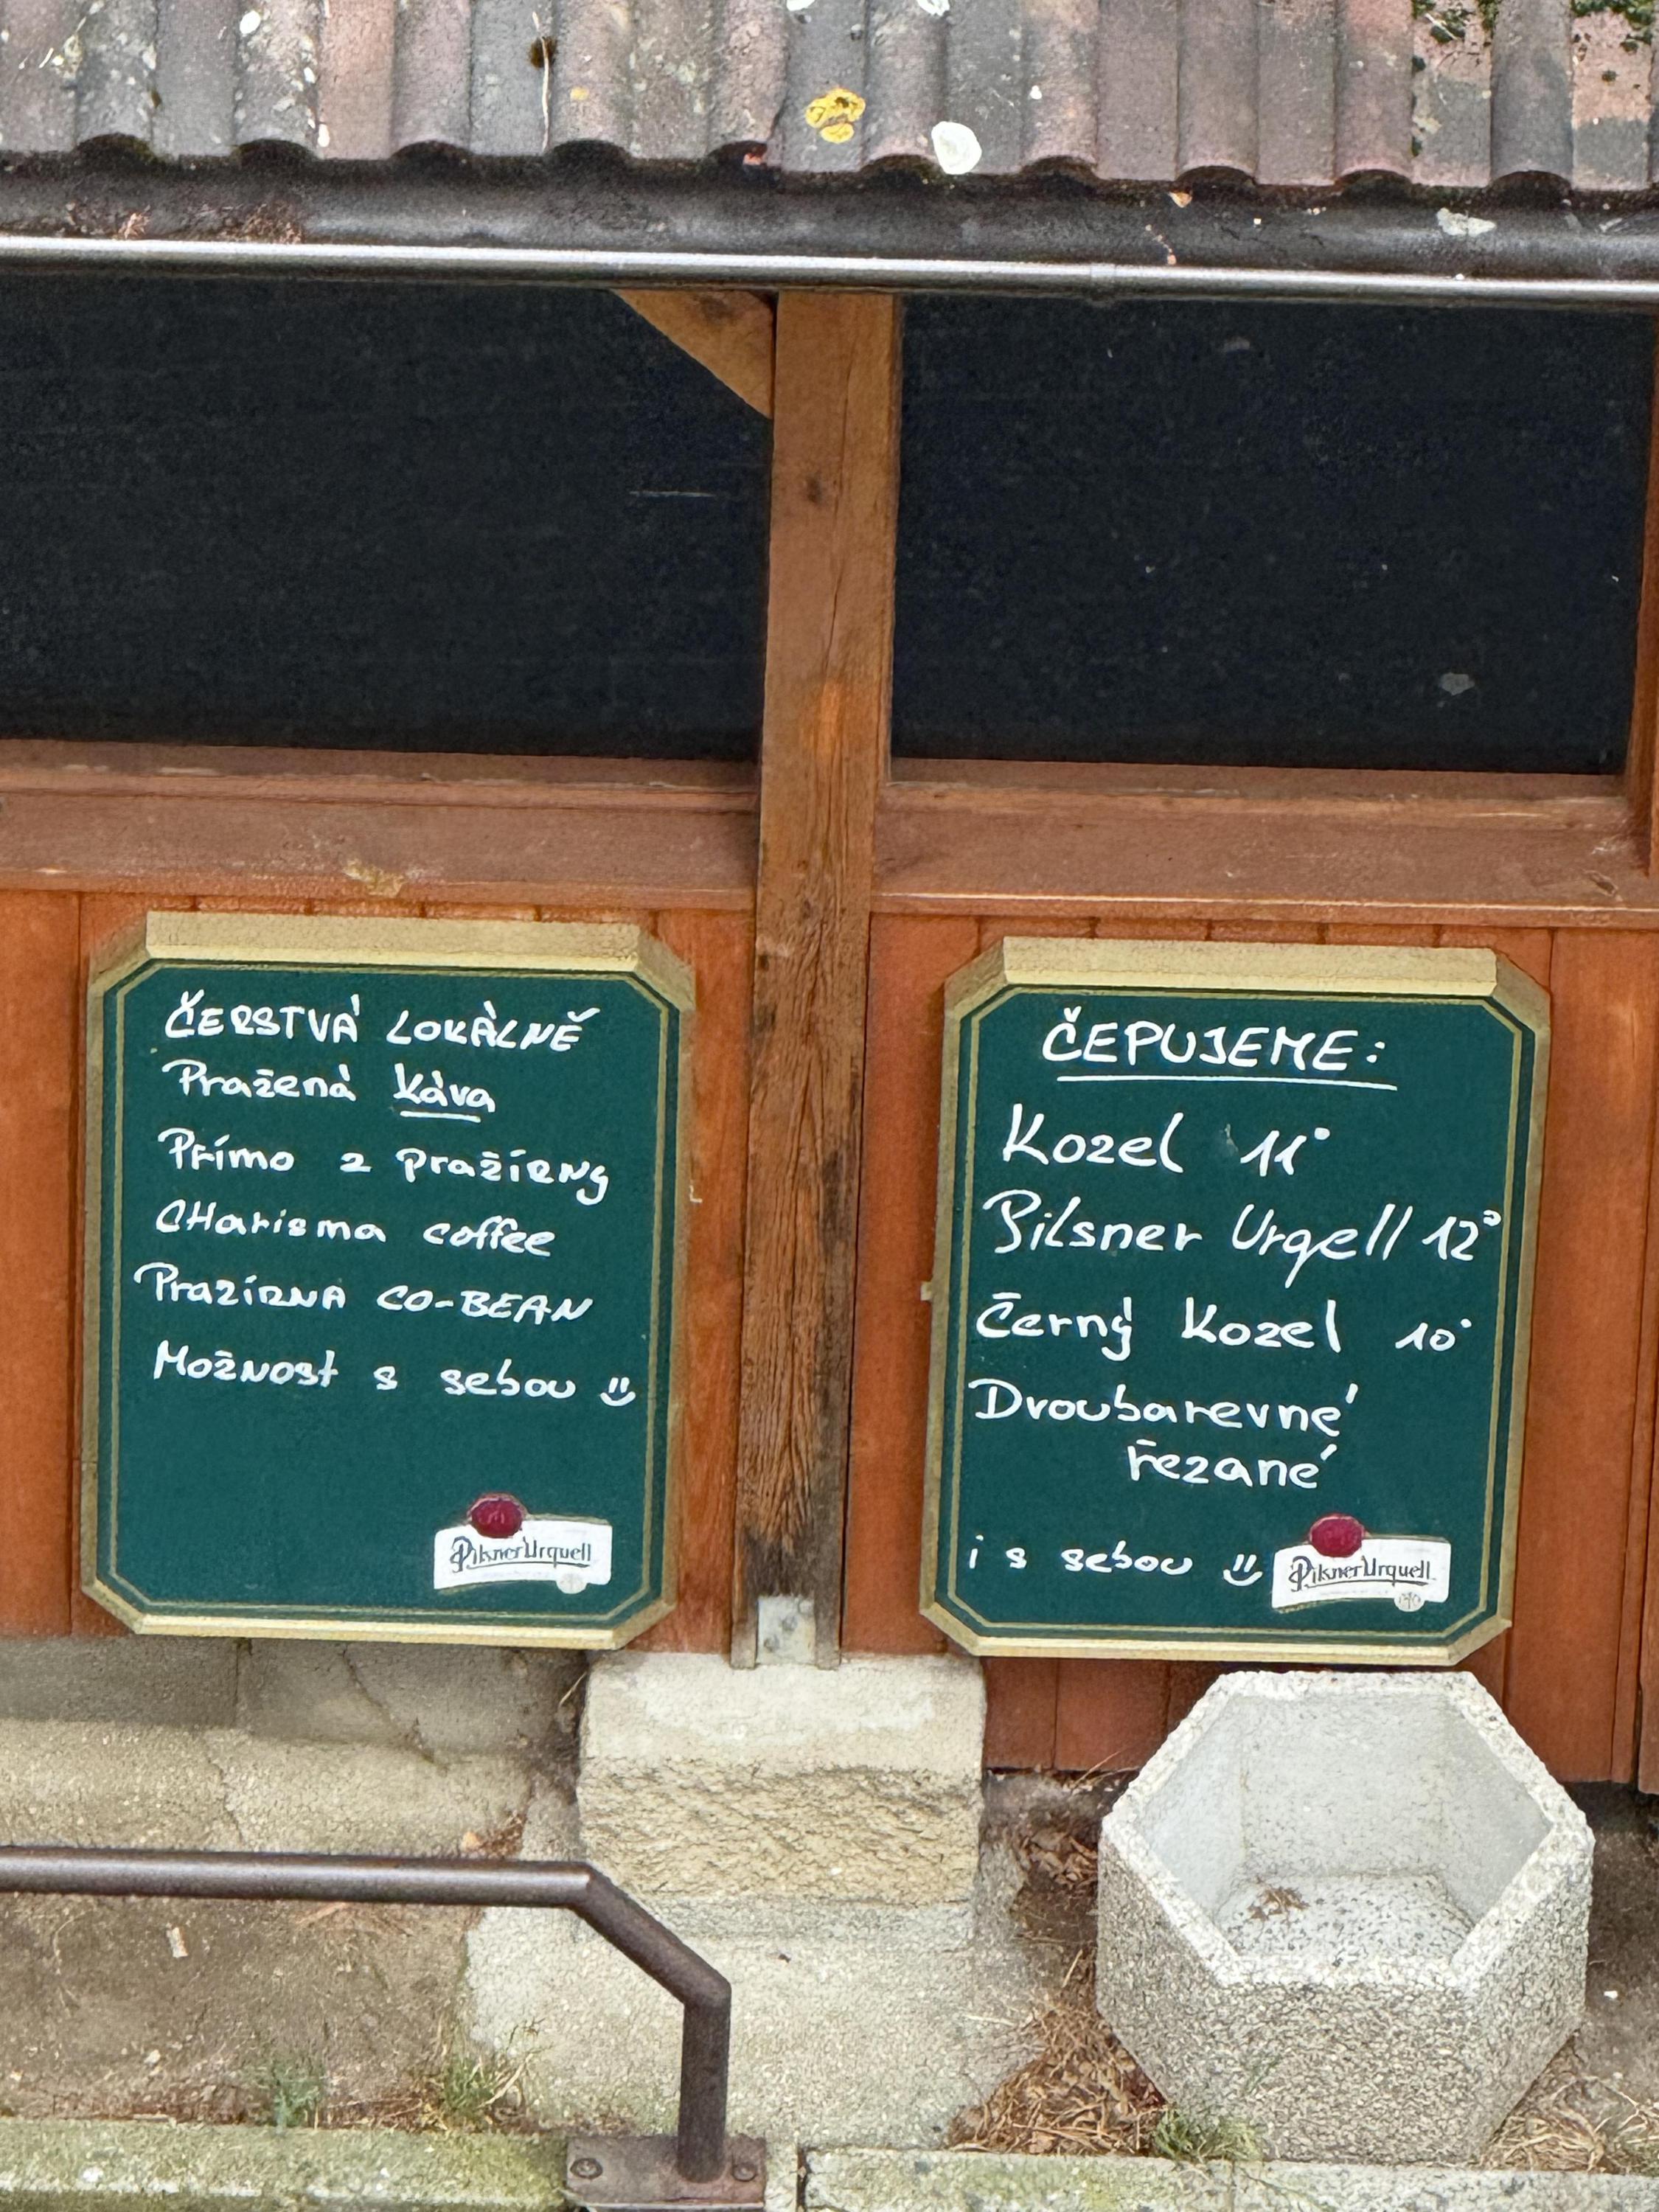 ČERSTVÁ LOKÁLNĚ
Pražená káva
Přímo z pražírny
CHarisma coffee
Prazírna CO-BEAN
Možnost s sebou
Pilsner Urquell
ČEPUJEME:
Kozel 11°
Pilsner Urqell 12°
Černý Kozel 10°
Dvoubarevné
řezané
i s sebou
Pilsner Urquell